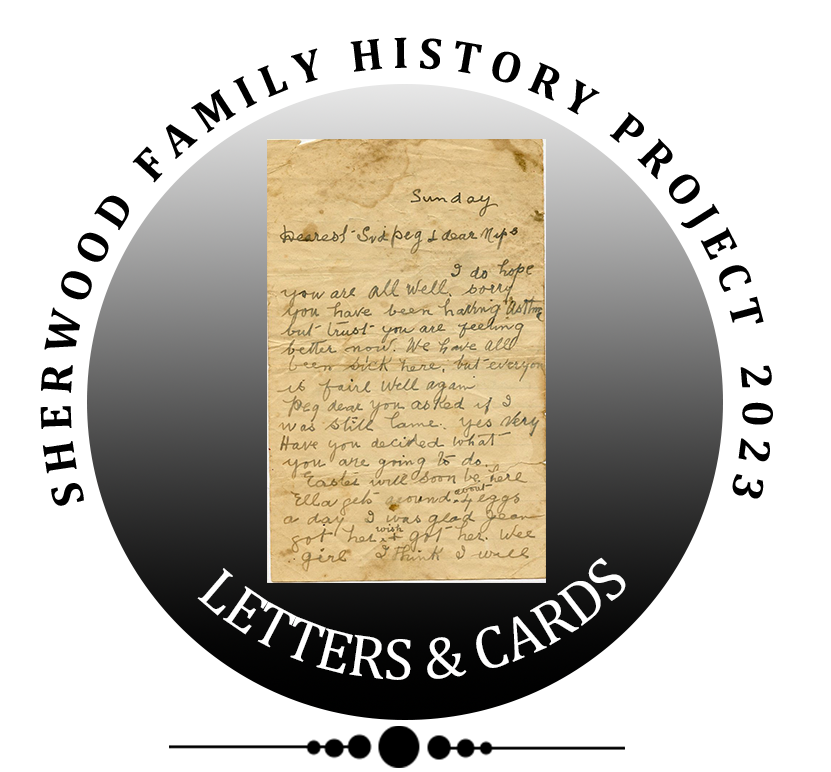 SHERWOOD FAMILY HISTORY PROJECT 2023
Sunday
Dearest Syd peg & dear Nips
I do hope
you are all Well. sorry
you have been having Asthma
but trust you are feeling
better now. We have all
been sick here, but everyon
is fairl Well again
Peg dear you asked if I
was still lame. yes Very
Have you decided what
you are going to do.
Easter will soon be here
Ella gets around about 4 eggs
a day I was glad Jean
got her wish & got her Wee
girl I think I will
LETTERS & CARDS